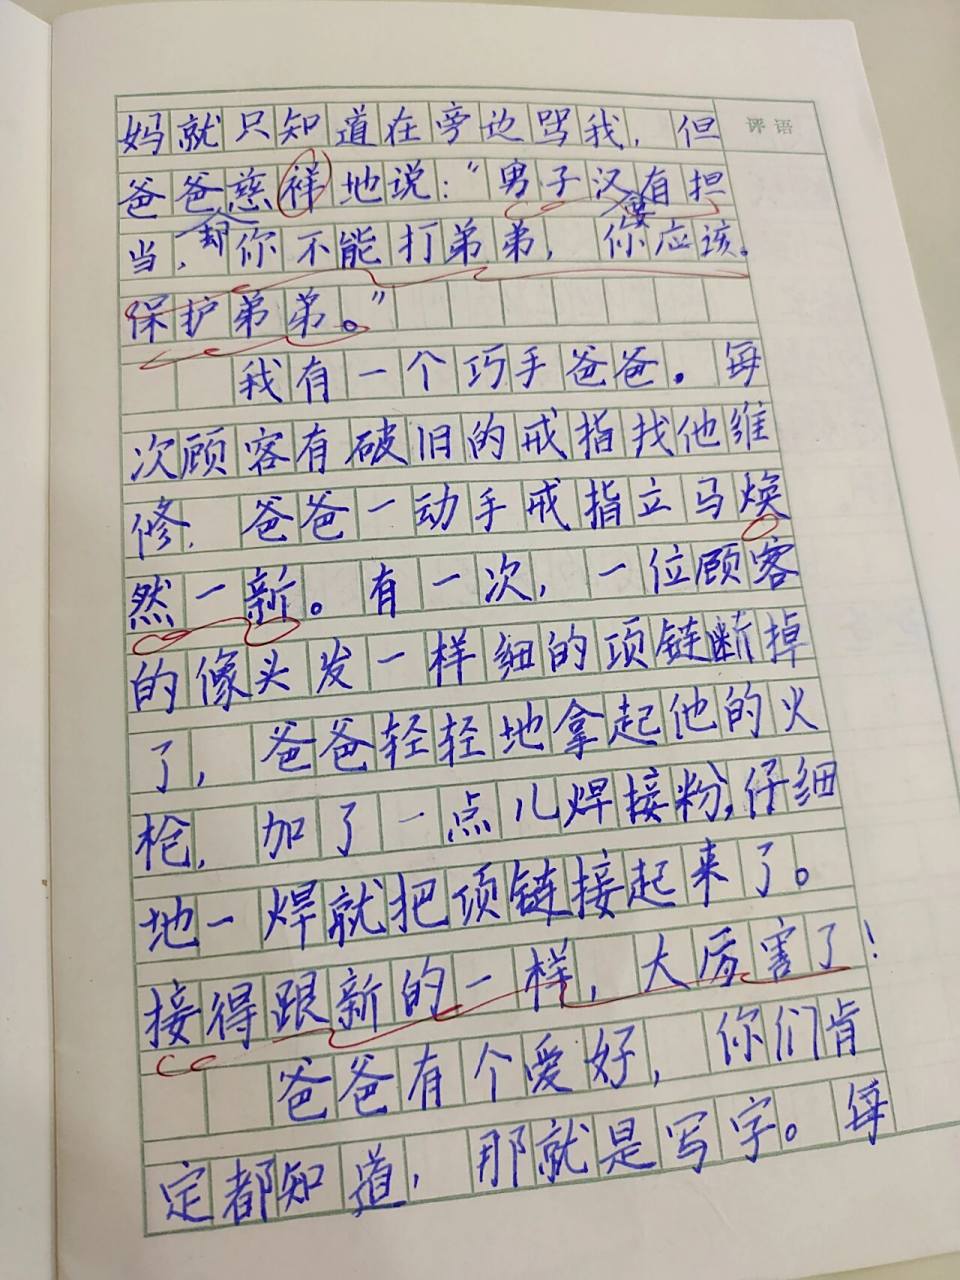 评语
妈就只知道在旁边骂我，但
爸爸慈祥地说：“男子汉有担
却
要
当，你不能打弟弟，你应该。
保护弟弟。”
我有一个巧手爸爸。每
次顾客有破旧的戒指找他维
修，爸爸一动手戒指立马焕
然一新。有一次，一位顾客
的像头发一样细的项链断掉
了，爸爸轻轻地拿起他的火
枪，加了一点儿焊接粉，仔细
地一焊就把项链接起来了。
接得跟新的一样，太厉害了！
爸爸有个爱好，你们肯
定都知道，那就是写字。每